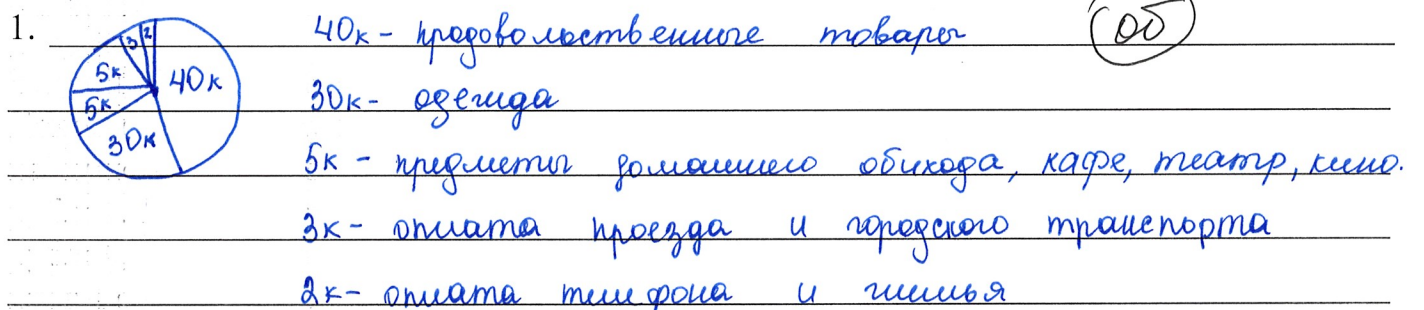 1.
3 2
5к 40к
5к
30к
40к - продовольственные товары
0б
30к - одежда
5к - предметы домашнего обихода, кафе, театр, кино.
3к - оплата проезда и городского транспорта
2к - оплата телефона и жилья